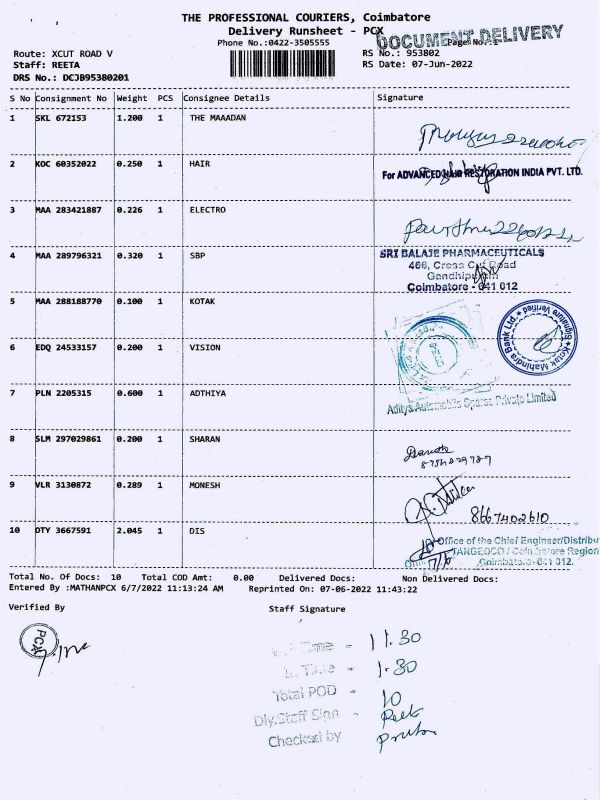 THE PROFESSIONAL COURIERS, Coimbatore
Delivery Runsheet - PCX
DOCUMENT DELIVERY
Phone No.:0422-3505555
Page No.:1
Route: XCUT ROAD V
RS No.: 953802
Staff: REETA
RS Date: 07-Jun-2022
DRS No.: DCJB95380201
S No Consignment No Weight PCS Consignee Details Signature
1 SKL 672153 1.200 1 THE MAAADAN
2 KOC 60352022 0.250 1 HAIR
For ADVANCED HAIR RESTORATION INDIA PVT. LTD.
3 MAA 283421887 0.226 1 ELECTRO
4 MAA 289796321 0.320 1 SBP
SRI BALAJE PHARMACEUTICALS
466, Cross Cut Road
Gandhipuram
Coimbatore - 641 012
5 MAA 288188770 0.100 1 KOTAK
Kotak Mahindra Bank Ltd.
Signature Verified
6 EDQ 24533157 0.200 1 VISION
7 PLN 2205315 0.600 1 ADTHIYA
Aditya Automobile Spares Private Limited
8 SLM 297029861 0.200 1 SHARAN
9 VLR 3130872 0.289 1 MONESH
8667402610
10 OTY 3667591 2.045 1 DIS
Office of the Chief Engineer/Distribu
TANGEDCO / Coimbatore Region
Coimbatore-641 012.
Total No. Of Docs: 10 Total COD Amt: 0.00 Delivered Docs: Non Delivered Docs:
Entered By :MATHANPCX 6/7/2022 11:13:24 AM Reprinted On: 07-06-2022 11:43:22
Verified By Staff Signature
PCX
Time - 11.30
In Time - 1.30
Total POD - 10
Dly.Staff Sign - Reeta
Checked by